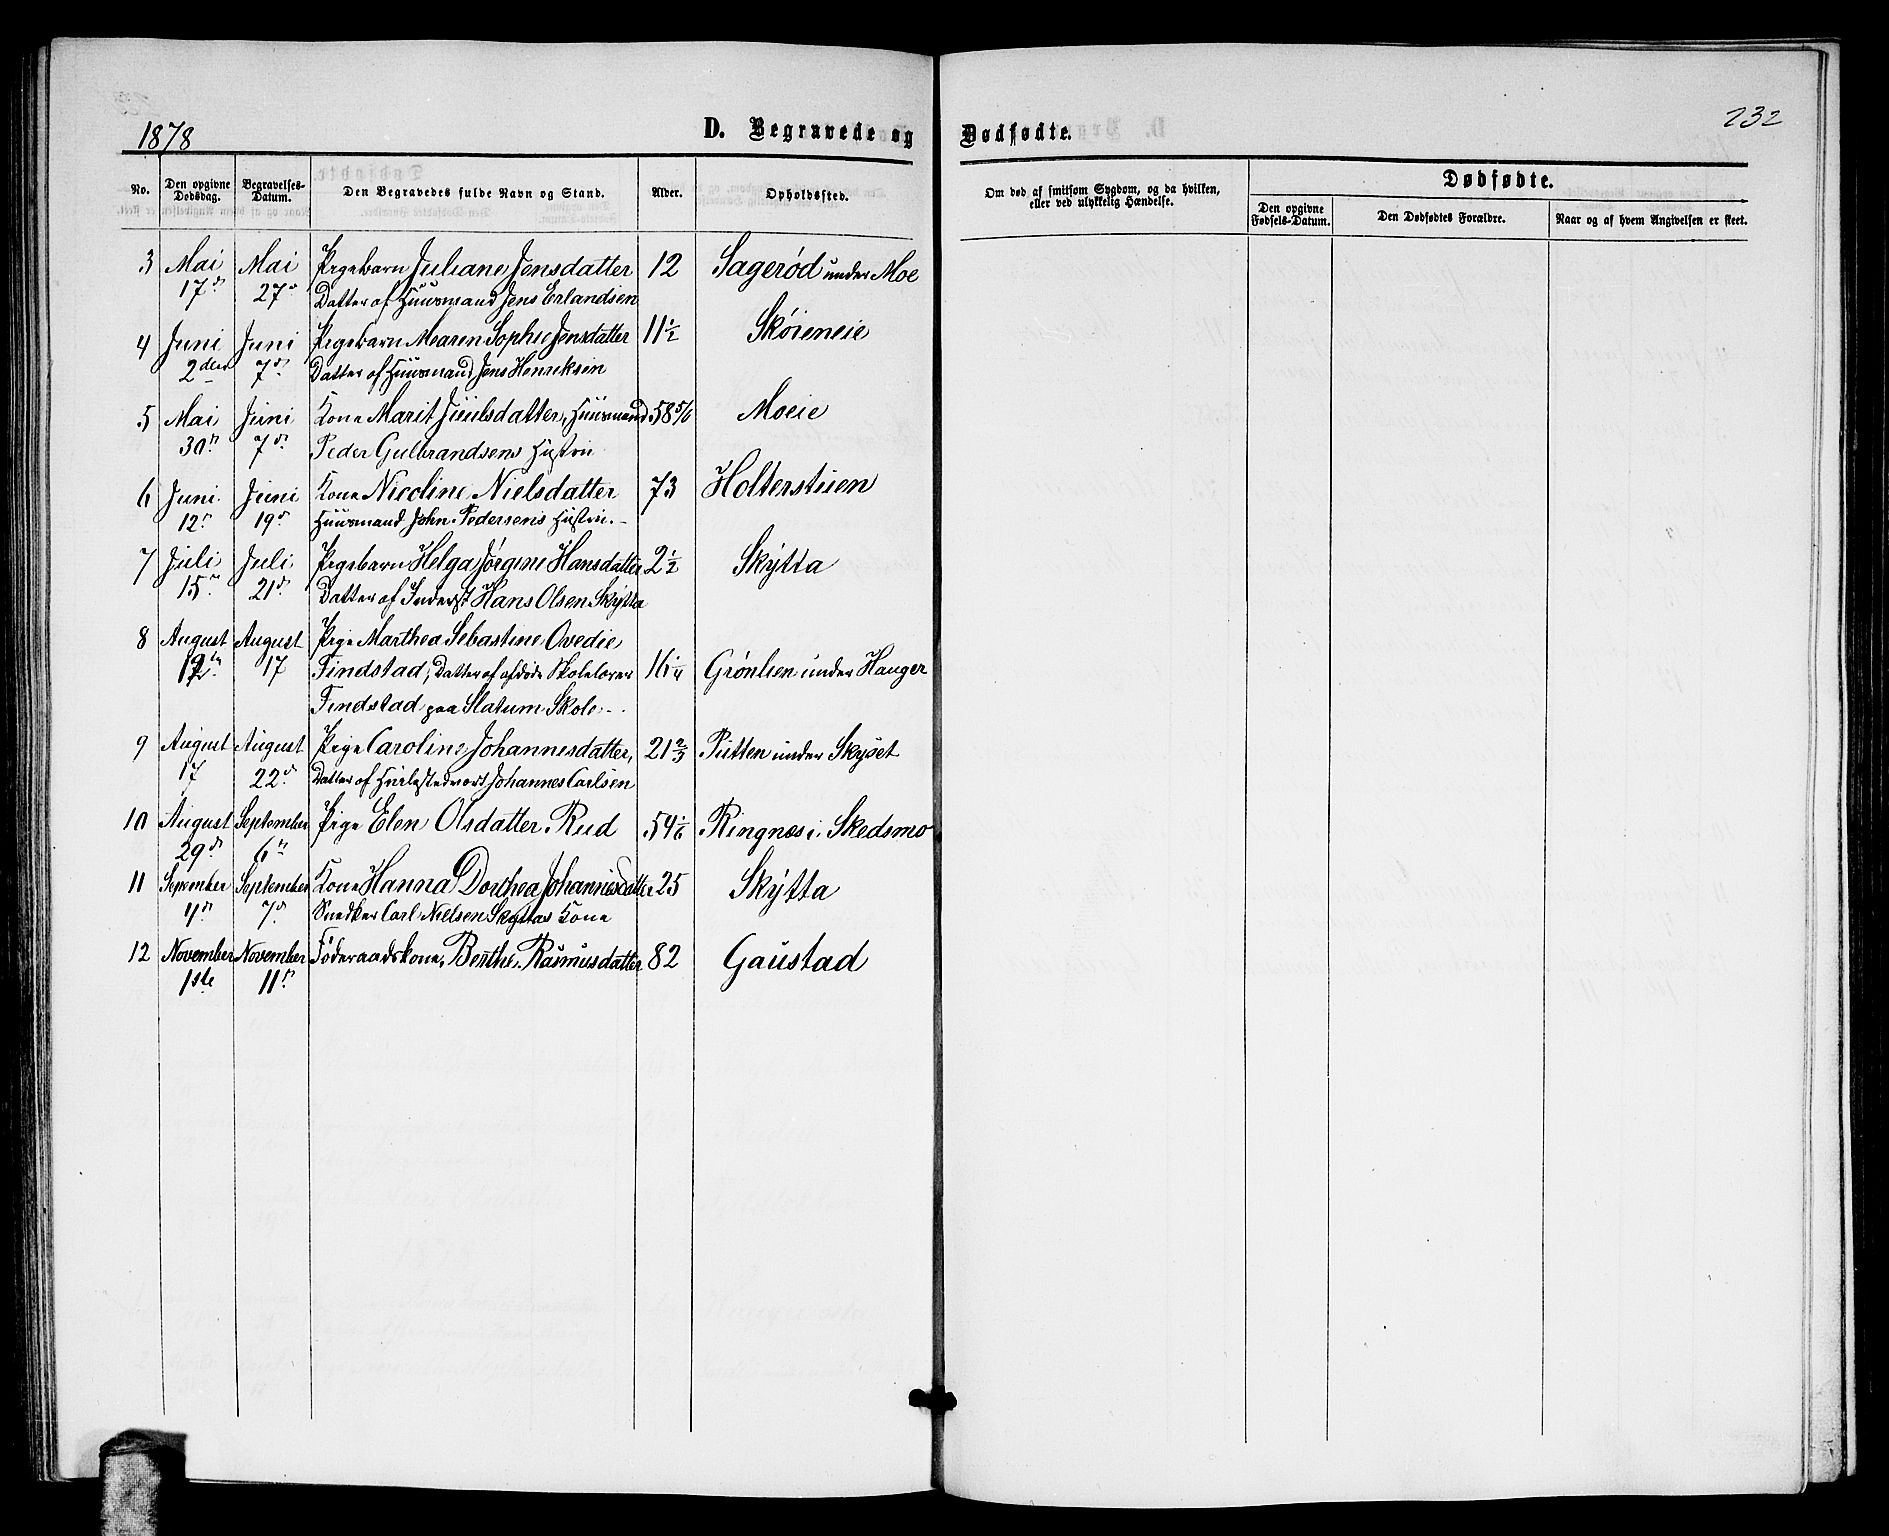 1878
D. Begravede og Dødfødte.
232
No. Den opgivne Dødsdag. Begravelses-Datum. Den Begravedes fulde Navn og Stand. Alder. Opholdssted.
Om død af smitsom Sygdom, og da hvilken, eller ved ulykkelig Hændelse.
Dødfødte.
Den opgivne Fødsels-Datum. Den Dødfødtes Forældre. Naar og af hvem Angivelsen er skeet.
3 Mai Mai Pigebarn Juliane Jensdatter 12 Sagerød under Moe
17de 27de Datter af Huusmand Jens Erlandsen
4 Juni Juni Pigebarn Maren Sophie Jensdatter 11 1/2 Skøieneie
2den 7de Datter af Huusmand Jens Henriksen
5 Mai Juni Kone Marit Juulsdatter, Huusmand 58 5/6 Moeie
30te 7de Peder Gulbrandsens Hustru
6 Juni Juni Kone Nicoline Nielsdatter 73 Holterstuen
12te 19de Huusmand John Pedersens Hustru.
7 Juli Juli Pigebarn Helga Jørgine Hansdatter 2 1/2 Skÿtta
15de 21de Datter af Inderst Hans Olsen Skÿtta
8 August August Pige Marthea Sebastine Ovedie
12te 17 Findstad, Datter af afdøde Skolelærer 16 1/4 Grønlien under Hauger
Findstad paa Slatum Skole.
9 August August Pige Caroline Johannesdatter, 21 2/3 Putten under Skyset
17 22de Datter af Johannes Carlsen
10 August September Pige Elen Olsdatter Rud 54 1/6 Ringnæs i Skedsmo
29de 6te
11 September September Kone Hanna Dorthea Johannesdatter 25 Skÿtta
4de 7de Snedker Carl Nielsen Skyttas Kone
12 November November Føderaadskone Berthe Rasmusdatter 82 Gaustad
1ste 11te